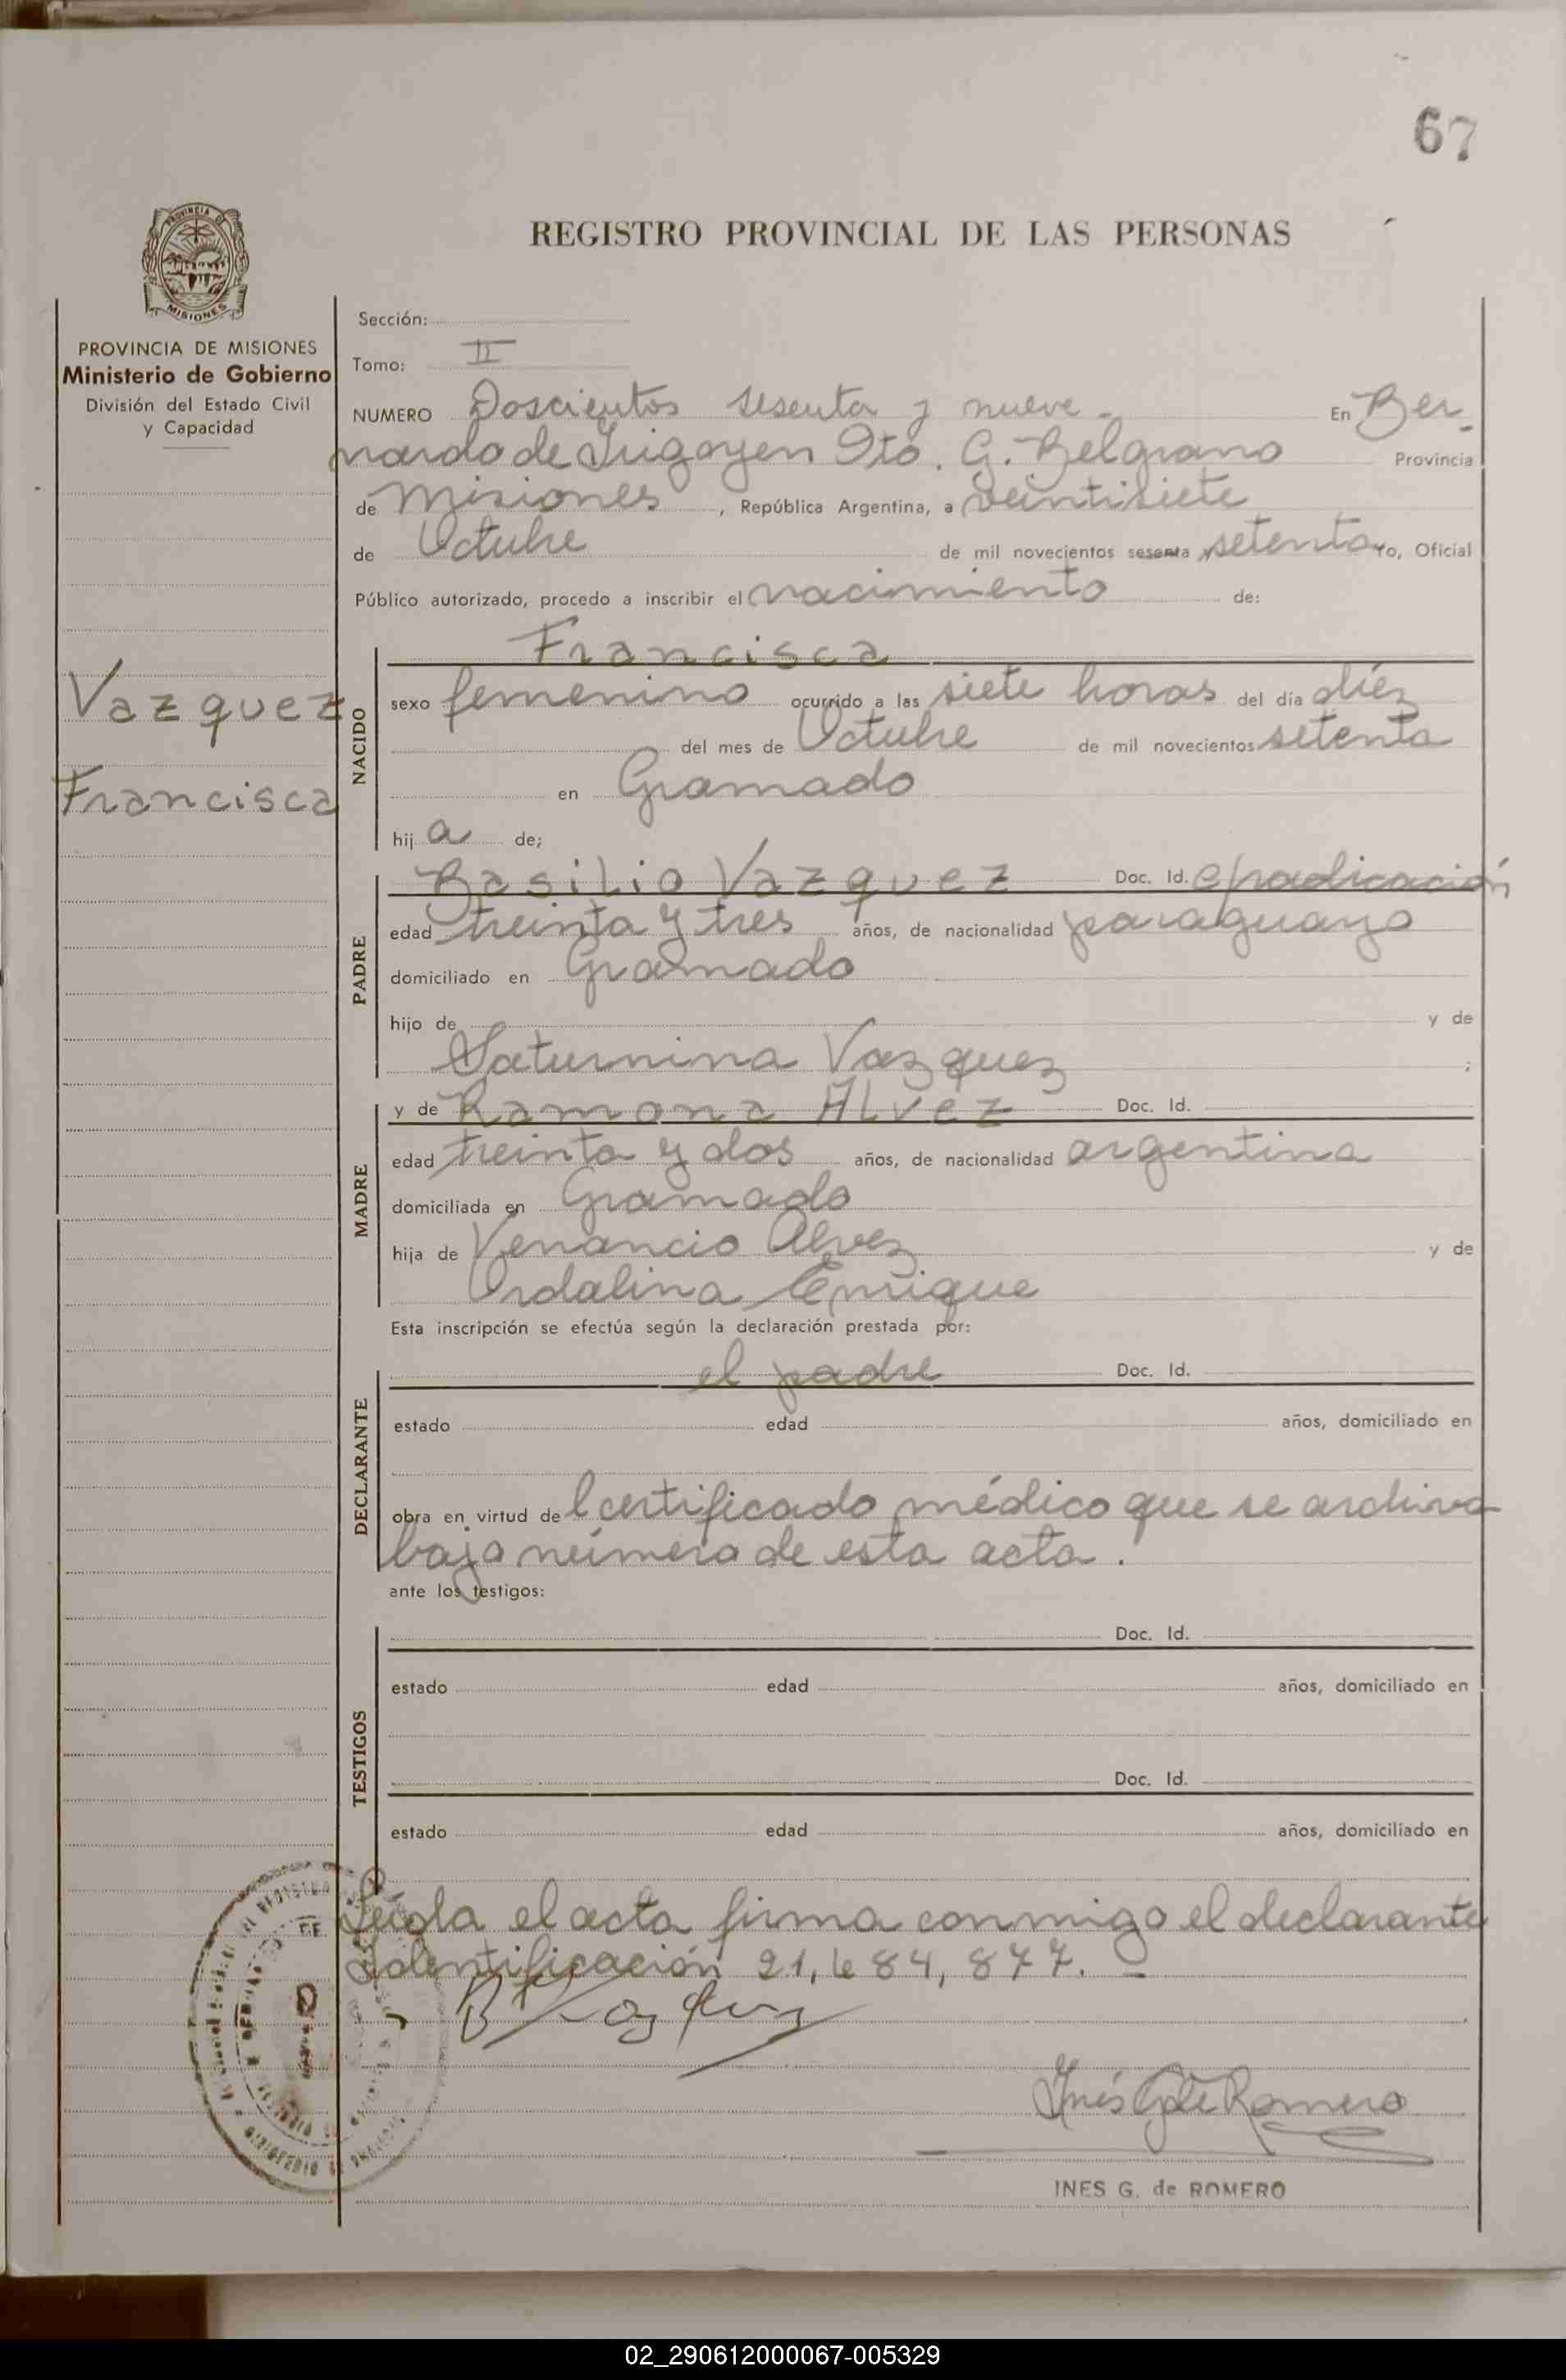 67
REGISTRO PROVINCIAL DE LAS PERSONAS
PROVINCIA DE MISIONES
Ministerio de Gobierno
División del Estado Civil
y Capacidad
Vazquez
Francisca
Sección:
Tomo: II
NUMERO Doscientos sesenta y nueve - En Ber-
nardo de Irigoyen Dto. G. Belgrano Provincia
de Misiones, República Argentina, a veintisiete
de Octubre de mil novecientos sesenta y setenta yo, Oficial
Público autorizado, procedo a inscribir el nacimiento de:
NACIDO
Francisca
sexo femenino ocurrido a las siete horas del día diéz
del mes de Octubre de mil novecientos setenta
en Gramado
hij a de;
PADRE
Basilio Vazquez Doc. Id. c/radicación
edad treinta y tres años, de nacionalidad paraguayo
domiciliado en Gramado
hijo de y de
Saturnina Vazquez ;
MADRE
y de Ramona Alvez Doc. Id.
edad treinta y dos años, de nacionalidad argentina
domiciliada en Gramado
hija de Venancio Alvez y de
Ordalina Enrique
Esta inscripción se efectúa según la declaración prestada por:
DECLARANTE
el padre Doc. Id.
estado edad años, domiciliado en
obra en virtud de l certificado médico que se archiva
bajo número de esta acta.
ante los testigos:
TESTIGOS
Doc. Id.
estado edad años, domiciliado en
Doc. Id.
estado edad años, domiciliado en
Leída el acta firma conmigo el declarante
Identificación 21,484,877. -
B Vazquez
Inés G de Romero
INES G. de ROMERO
02_290612000067-005329